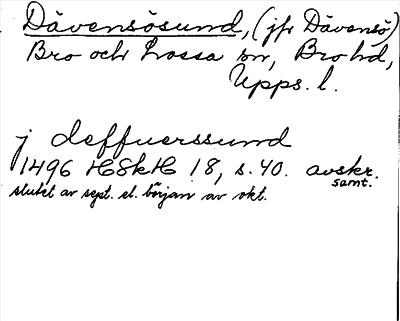 Dävensösund, (jfr Dävensö)
Bro och Lossa sn, Bro hd,
Upps. l.
j deffuerssund
1496 HSkH 18, s. 40. avskr.
samt.
slutet av sept. el. början av okt.